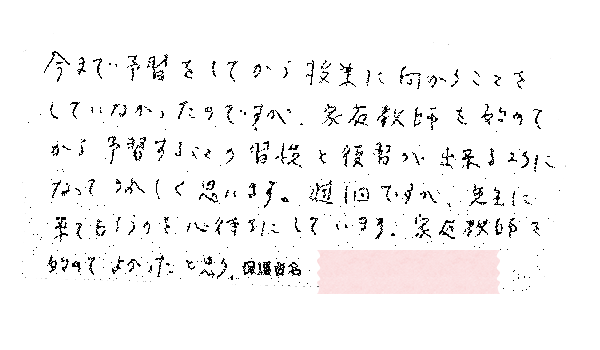 今まで予習をしてから授業に向かうことを
していなかったのですが、家庭教師を始めて
から予習することの習慣と復習が出来るように
なってうれしく思います。週1回ですが、先生に
来てもらうのを心待ちにしています。家庭教師を
始めてよかったと思う。保護者名